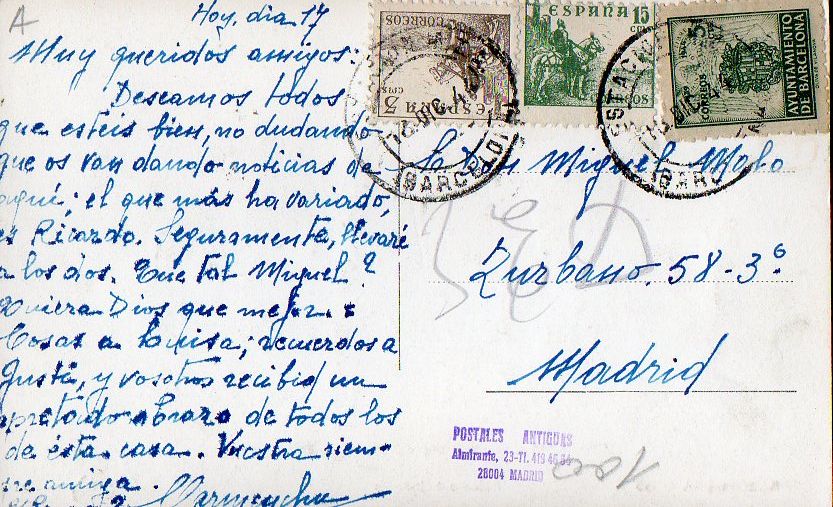 A
Hoy, dia 17
Muy queridos amigos:
Deseamos todos
que esteis bien, no dudando
que os van dando noticias de
aquí; el que más ha variado,
es Ricardo. Seguramente, llevaré
a los dos. Que tal Miguel?
Quiera Dios que mejor.
Cosas a Luisa; recuerdos a
Justa, y vosotros recibid un
apretado abrazo de todos los
de ésta casa. Vuestra siem-
pre amiga.
Carmenchu
CORREOS
5 cms
ESPAÑA
ESPAÑA
15
cts
CORREOS
AYUNTAMIENTO
DE BARCELONA
(BARCELONA)
Sr. Don Miguel Molo
Zurbano. 58-3º
Madrid
POSTALES ANTIGUAS
Almirante, 23-Tl. 419 46 54
28004 MADRID